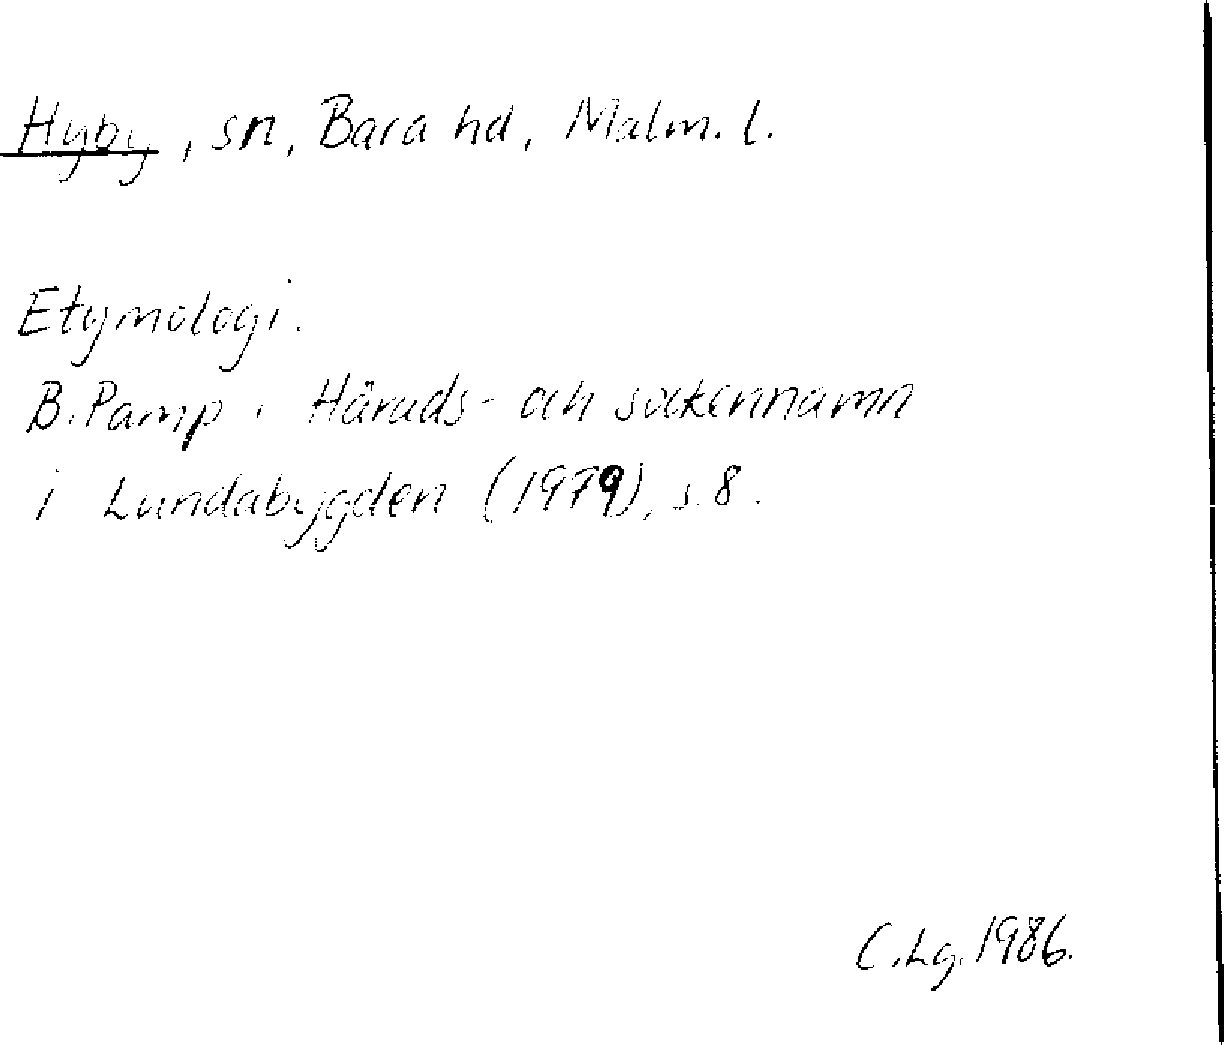 Hyby, sn, Bara hd, Malm. l.
Etymologi.
B. Pamp i Härads- och sockennamn
i Lundabygden (1979), s. 8.
C. Lg. 1986.